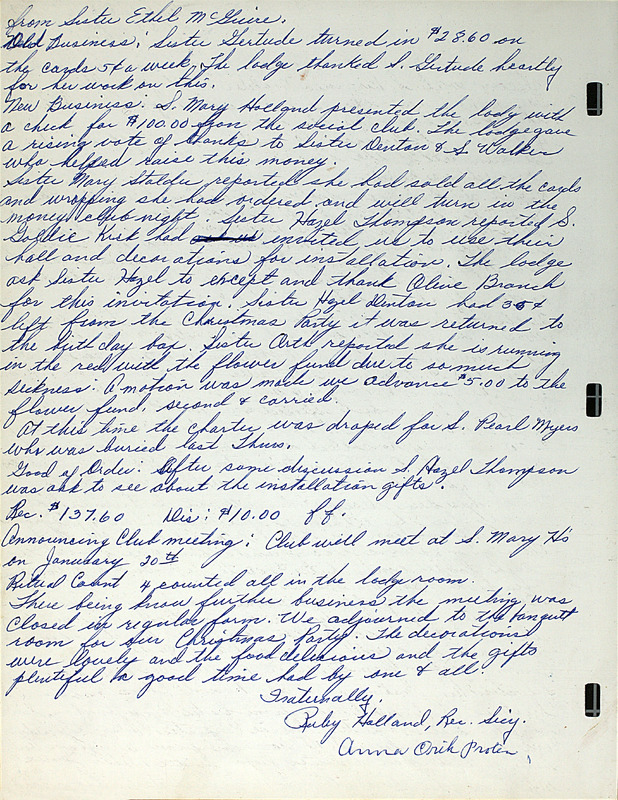 from Sister Ethel McGuire.
Old Business: Sister Gertude turned in $28.60 on
the cards 5¢ a week. The lodge thanked S. Gertude heartly
for her work on this.
New Business: S. Mary Holland presented the lody with
a check for $100.00 from the social club. The lodge gave
a rising vote of thanks to Sister Denton & S. Walker
who helped raise this money.
Sister Mary Stalder reported she had sold all the cards
and wrapping she had ordered and will turn in the
money club night. Sister Hazel Thompson reported S.
Goldie Kirk had invited us to use their
hall and decorations for installation. The lodge
ask Sister Hazel to except and thank Olive Branch
for this invitation. Sister Hazel Denton had 35¢
left from the Christmas Party it was returned to
the birthday box. Sister Orth reported she is running
in the red with the flower fund due to so much
sickness. A motion was made we advance $5.00 to the
flower fund, second & carried.
At this time the charter was draped for S. Pearl Myers
who was buried last Thurs.
Good of Order: After some discussion S. Hazel Thompson
was ask to see about the installation gifts.
Rec. $137.60 Dis: $10.00 ff.
Announcing Club meeting: Club will meet at S. Mary H's
on Januaary 20th
Ritual Count 4 counted all in the lodge room.
There being know further business the meeting was
closed in regular form. We adjourned to the banquett
room for our Christmas Party. The decorations
were lovely and the food delicious and the gifts
plentiful & good time had by one & all.
Fraternally,
Ruby Holland, Rec. Secy.
Anna Protem